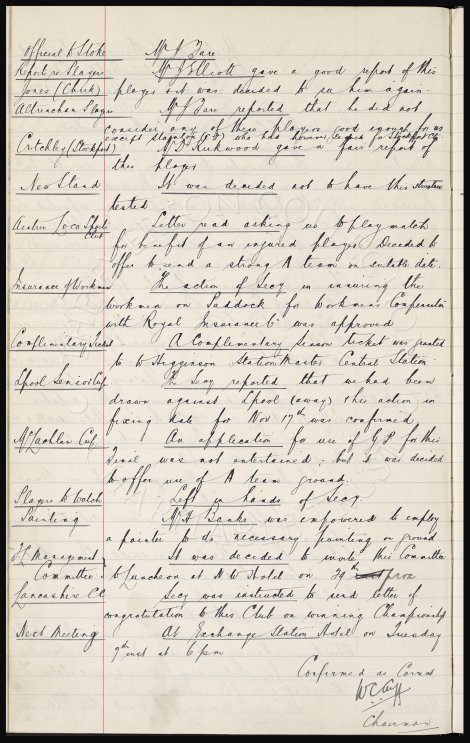 Official to Stoke Mr J Bare
Report re Players Mr J Elliott gave a good report of this
Jones (Chirk) player & it was decided to see him again.
Altrincham Player Mr J Bare reported that he did not
consider any of these players good enough for us
except Stapleton (F.B) who had however signed for Stockport Cy
Critchley (Stockport) Mr D Kirkwood gave a fair report of
this player
New Stand It was decided not to have this structure
tested
Aintree Loco Sports Club Letter read asking us to play match
for benefit of an injured player. Decided to
offer to send a strong A team on suitable date.
Insurance of Workmen The action of Secy in insuring the
workmen on Paddock for Workmens Compensation
with Royal Insurance Co was approved
Complimentary Ticket A Complimentary season ticket was granted
to W Higginson Station Master Central Station
Lpool Senior Cup The Secy reported that we had been
drawn against Lpool (away) & the action in
fixing date for Nov 17th was confirmed
McLachlan Cup An application for use of G.P for this
Final was not entertained; but it was decided
to offer use of A team ground.
Players to Watch Left in hands of Secy
Painting Mr H Banks was empowered to employ
a painter to do necessary painting on ground.
F L Management Committee It was decided to invite this Committee
to Luncheon at N W Hotel on 29th prox
Lancashire CC Secy was instructed to send letter of
congratulation to this Club on winning Championship
Next Meeting At Exchange Station Hotel on Tuesday
7th inst at 6 pm
Confirmed as Correct
W C Cuff
Chairman